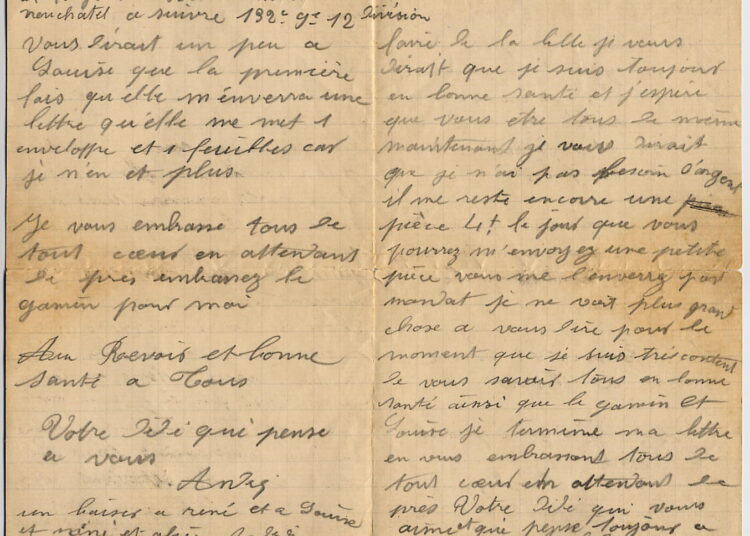 neuchatel a suivre 132e 9e 12 division
Vous dirait un peu a
Louise que la première
fois qu'elle m'enverra une
lettre qu'elle me met 1
enveloppe et 1 feuilles car
je n'en et plus.
Je vous embrasse tous de
tout cœur en attendant
de près embrassez le
gamin pour moi
Aux Roevoir et bonne
Santé a Tous
Votre Dédé qui pense
a vous
un baiser a rené et a Louise
faire de la bille je vous
dirait que je suis toujour
en bonne santé et j'espère
que vous ètre tous de meme
maintenant je vous dirait
que je n'ai pas besoin d'argent
il me reste encore une
pièce 4f. le jour que vous
pourrez m'envoyez une petite
pièce vous me l'enverrez par
mandat je ne voit plus grand
chose a vous dire pour le
moment que je suis très content
de vous savoir tous en bonne
santé ainsi que le gamin et
Louise je termine ma lettre
en vous embrassant tous de
tout cœur en attendant de
près Votre Dédé qui vous
aime et qui pense toujour a